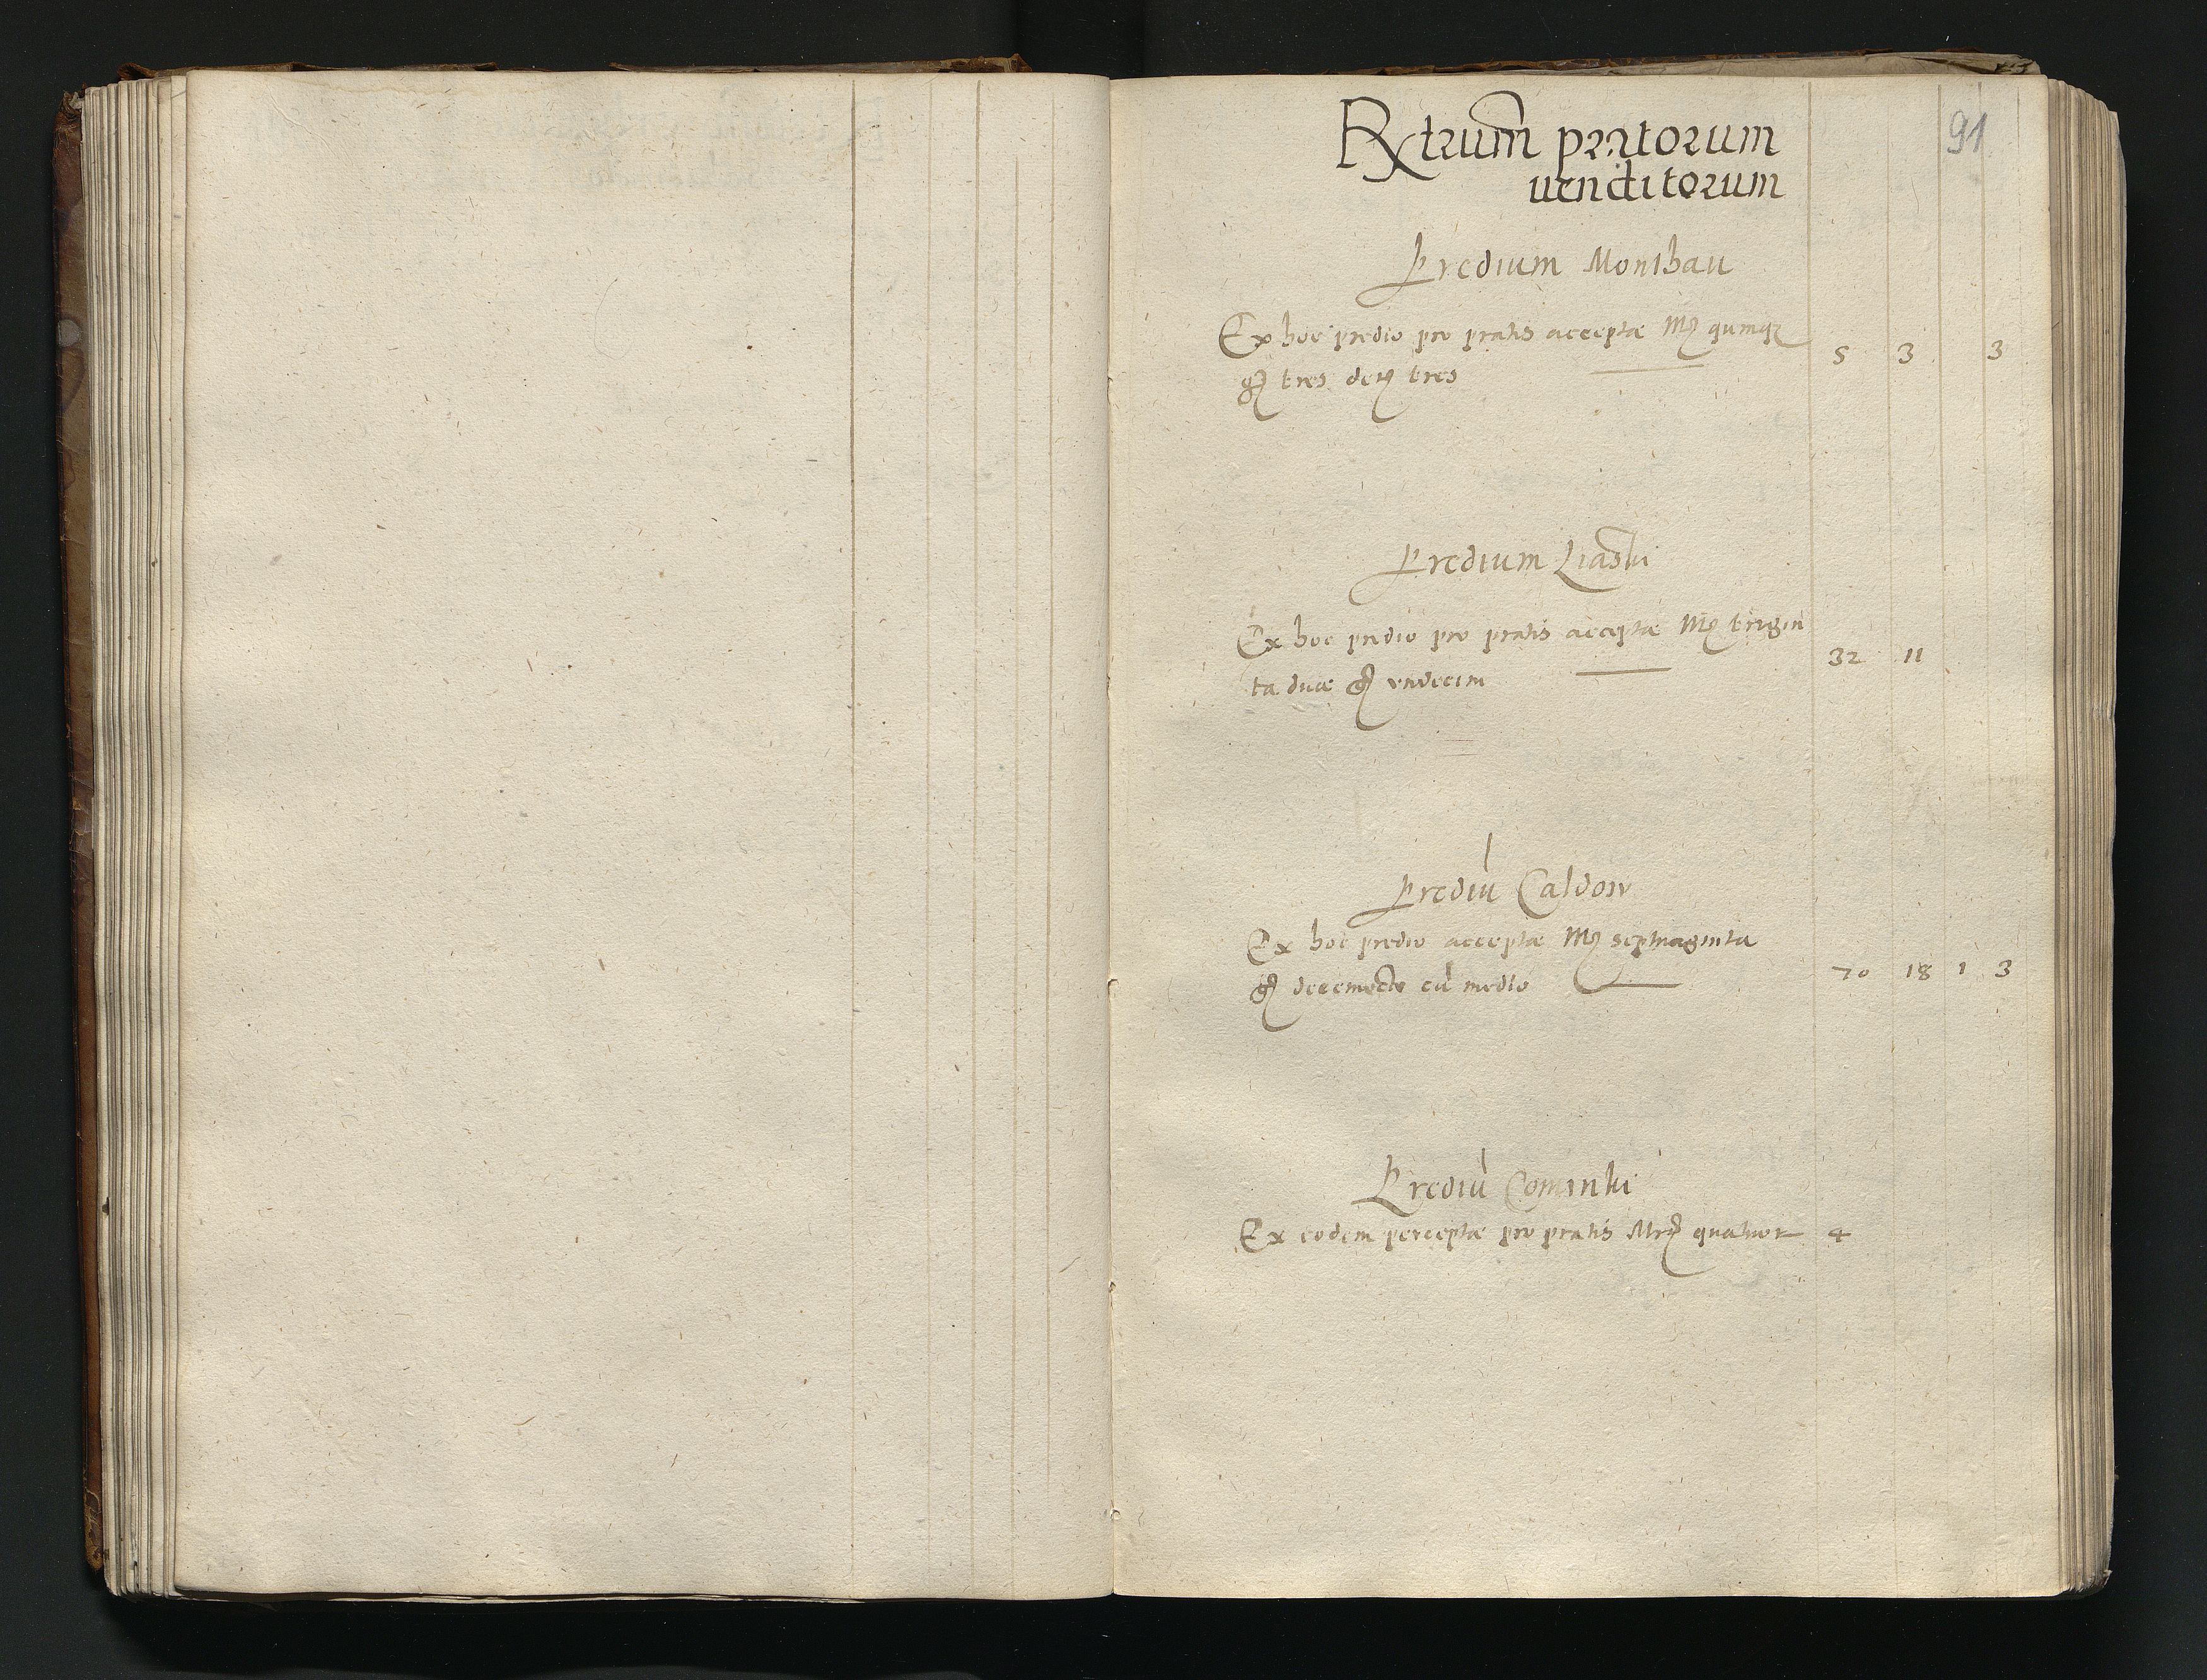 91
Rxtrum pratorum
uenditorum
Predium Monthau
Ex hoc predio pro pratis acceptae Mr quinqz
gr tres den tres
5 3 3
Predium Liaski
Ex hoc predio pro pratis acceptae Mr trigin
ta duae gr undecim
32 11
Prediu Caldow
Ex hoc predio acceptae Mr septuaginta
gr decemocto cu medio
70 18 1 3
Prediu Cominki
Ex eodem perceptae pro pratis Mrc quatuor 4